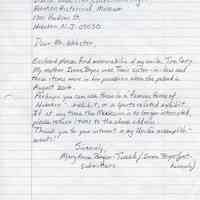 Hoboken Historical Museum
1301 Hudson St.
Hoboken N.J. 07030
Dear Mr. Webster
Enclosed please find memorabilia of my uncle, Tom
My mother was Tom's sister-in-law and
these items were in her possession when she passed in
August 2004.
Perhaps you can use these in a famous Sons of
Hoboken exhibit, or a sports related exhibit.
If at any time the Museum is no longer interested,
please return items to the above address.
Thank you for your interest in my Uncle's accomplish-
ments!!
Sincerely,
Mary Anne
submitters